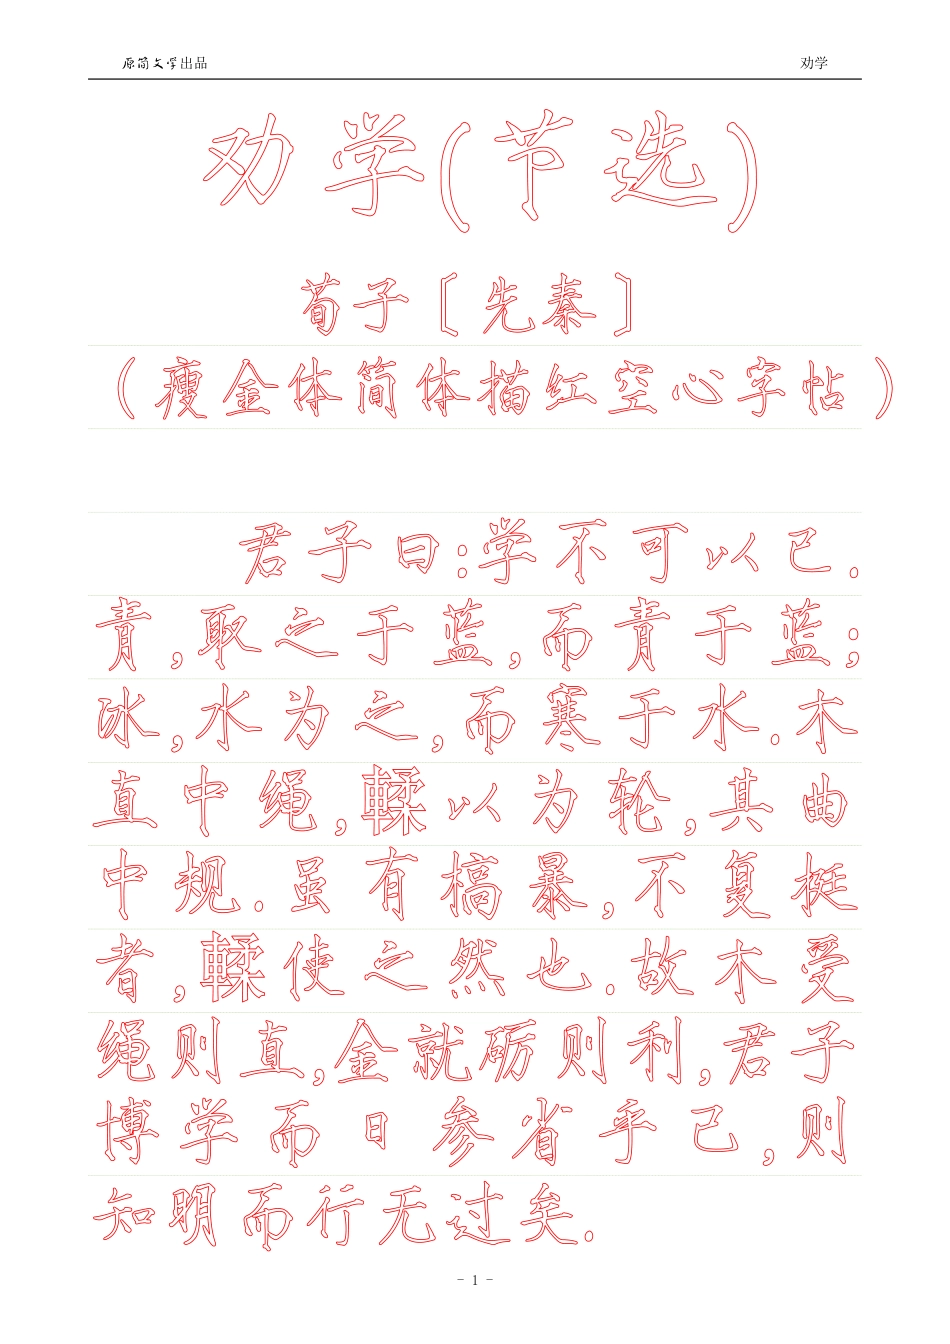 原简文学出品 劝学
劝学(节选)
荀子〔先秦〕
（瘦金体简体描红空心字帖）
君子曰:学不可以已.
青,取之于蓝,而青于蓝;
冰,水为之,而寒于水.木
直中绳,輮以为轮,其曲
中规.虽有槁暴,不复挺
者,輮使之然也.故木受
绳则直,金就砺则利,君子
博学而日参省乎己,则
知明而行无过矣.
- 1 -